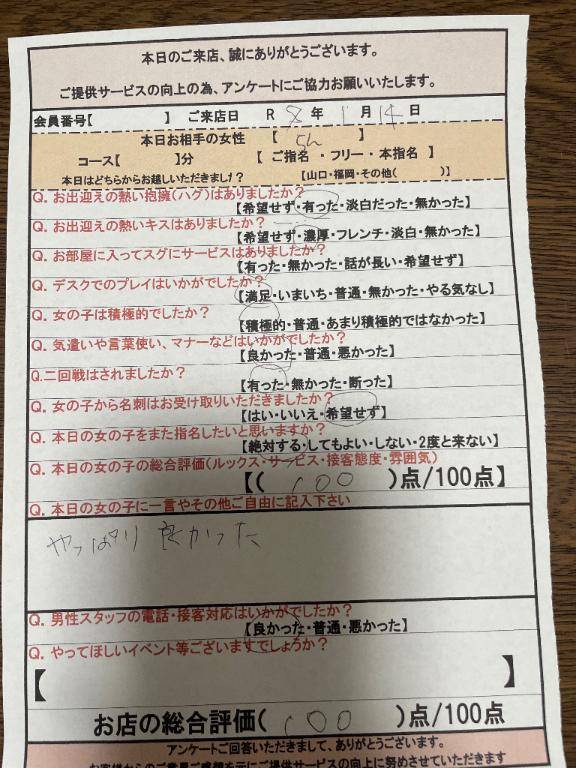 本日のご来店、誠にありがとうございます。
ご提供サービスの向上の為、アンケートにご協力お願いいたします。
会員番号【 】 ご来店日 R 8 年 1 月 14 日
本日お相手の女性 【 】
コース【 】分 【 ご指名 ・ フリー ・ 本指名 】
本日はどちらからお越しいただきました? 【山口・福岡・その他( )】
Q. お出迎えの熱い抱擁(ハグ)はありましたか?
【希望せず・有った・淡白だった・無かった】
Q. お出迎えの熱いキスはありましたか?
【希望せず・濃厚・フレンチ・淡白・無かった】
Q. お部屋に入ってスグにサービスはありましたか?
【有った・無かった・話が長い・希望せず】
Q. デスクでのプレイはいかがでしたか?
【満足・いまいち・普通・無かった・やる気なし】
Q. 女の子は積極的でしたか?
【積極的・普通・あまり積極的ではなかった】
Q. 気遣いや言葉使い、マナーなどはいかがでしたか?
【良かった・普通・悪かった】
Q.二回戦はされましたか?
【有った・無かった・断った】
Q. 女の子から名刺はお受け取りいただきましたか?
【はい・いいえ・希望せず】
Q. 本日の女の子をまた指名したいと思いますか?
【絶対する・してもよい・しない・2度と来ない】
Q. 本日の女の子の総合評価(ルックス・サービス・接客態度・雰囲気)
【( 100 )点/100点】
Q. 本日の女の子に一言やその他ご自由に記入下さい
やっぱり良かった
Q. 男性スタッフの電話・接客対応はいかがでしたか?
【良かった・普通・悪かった】
Q. やってほしいイベント等ございますでしょうか?
【 】
お店の総合評価( 100 )点/100点
アンケートご回答いただきまして、ありがとうございます。
お客様からのご意見ご感想を元にご提供サービスの向上に努めさせていただきます